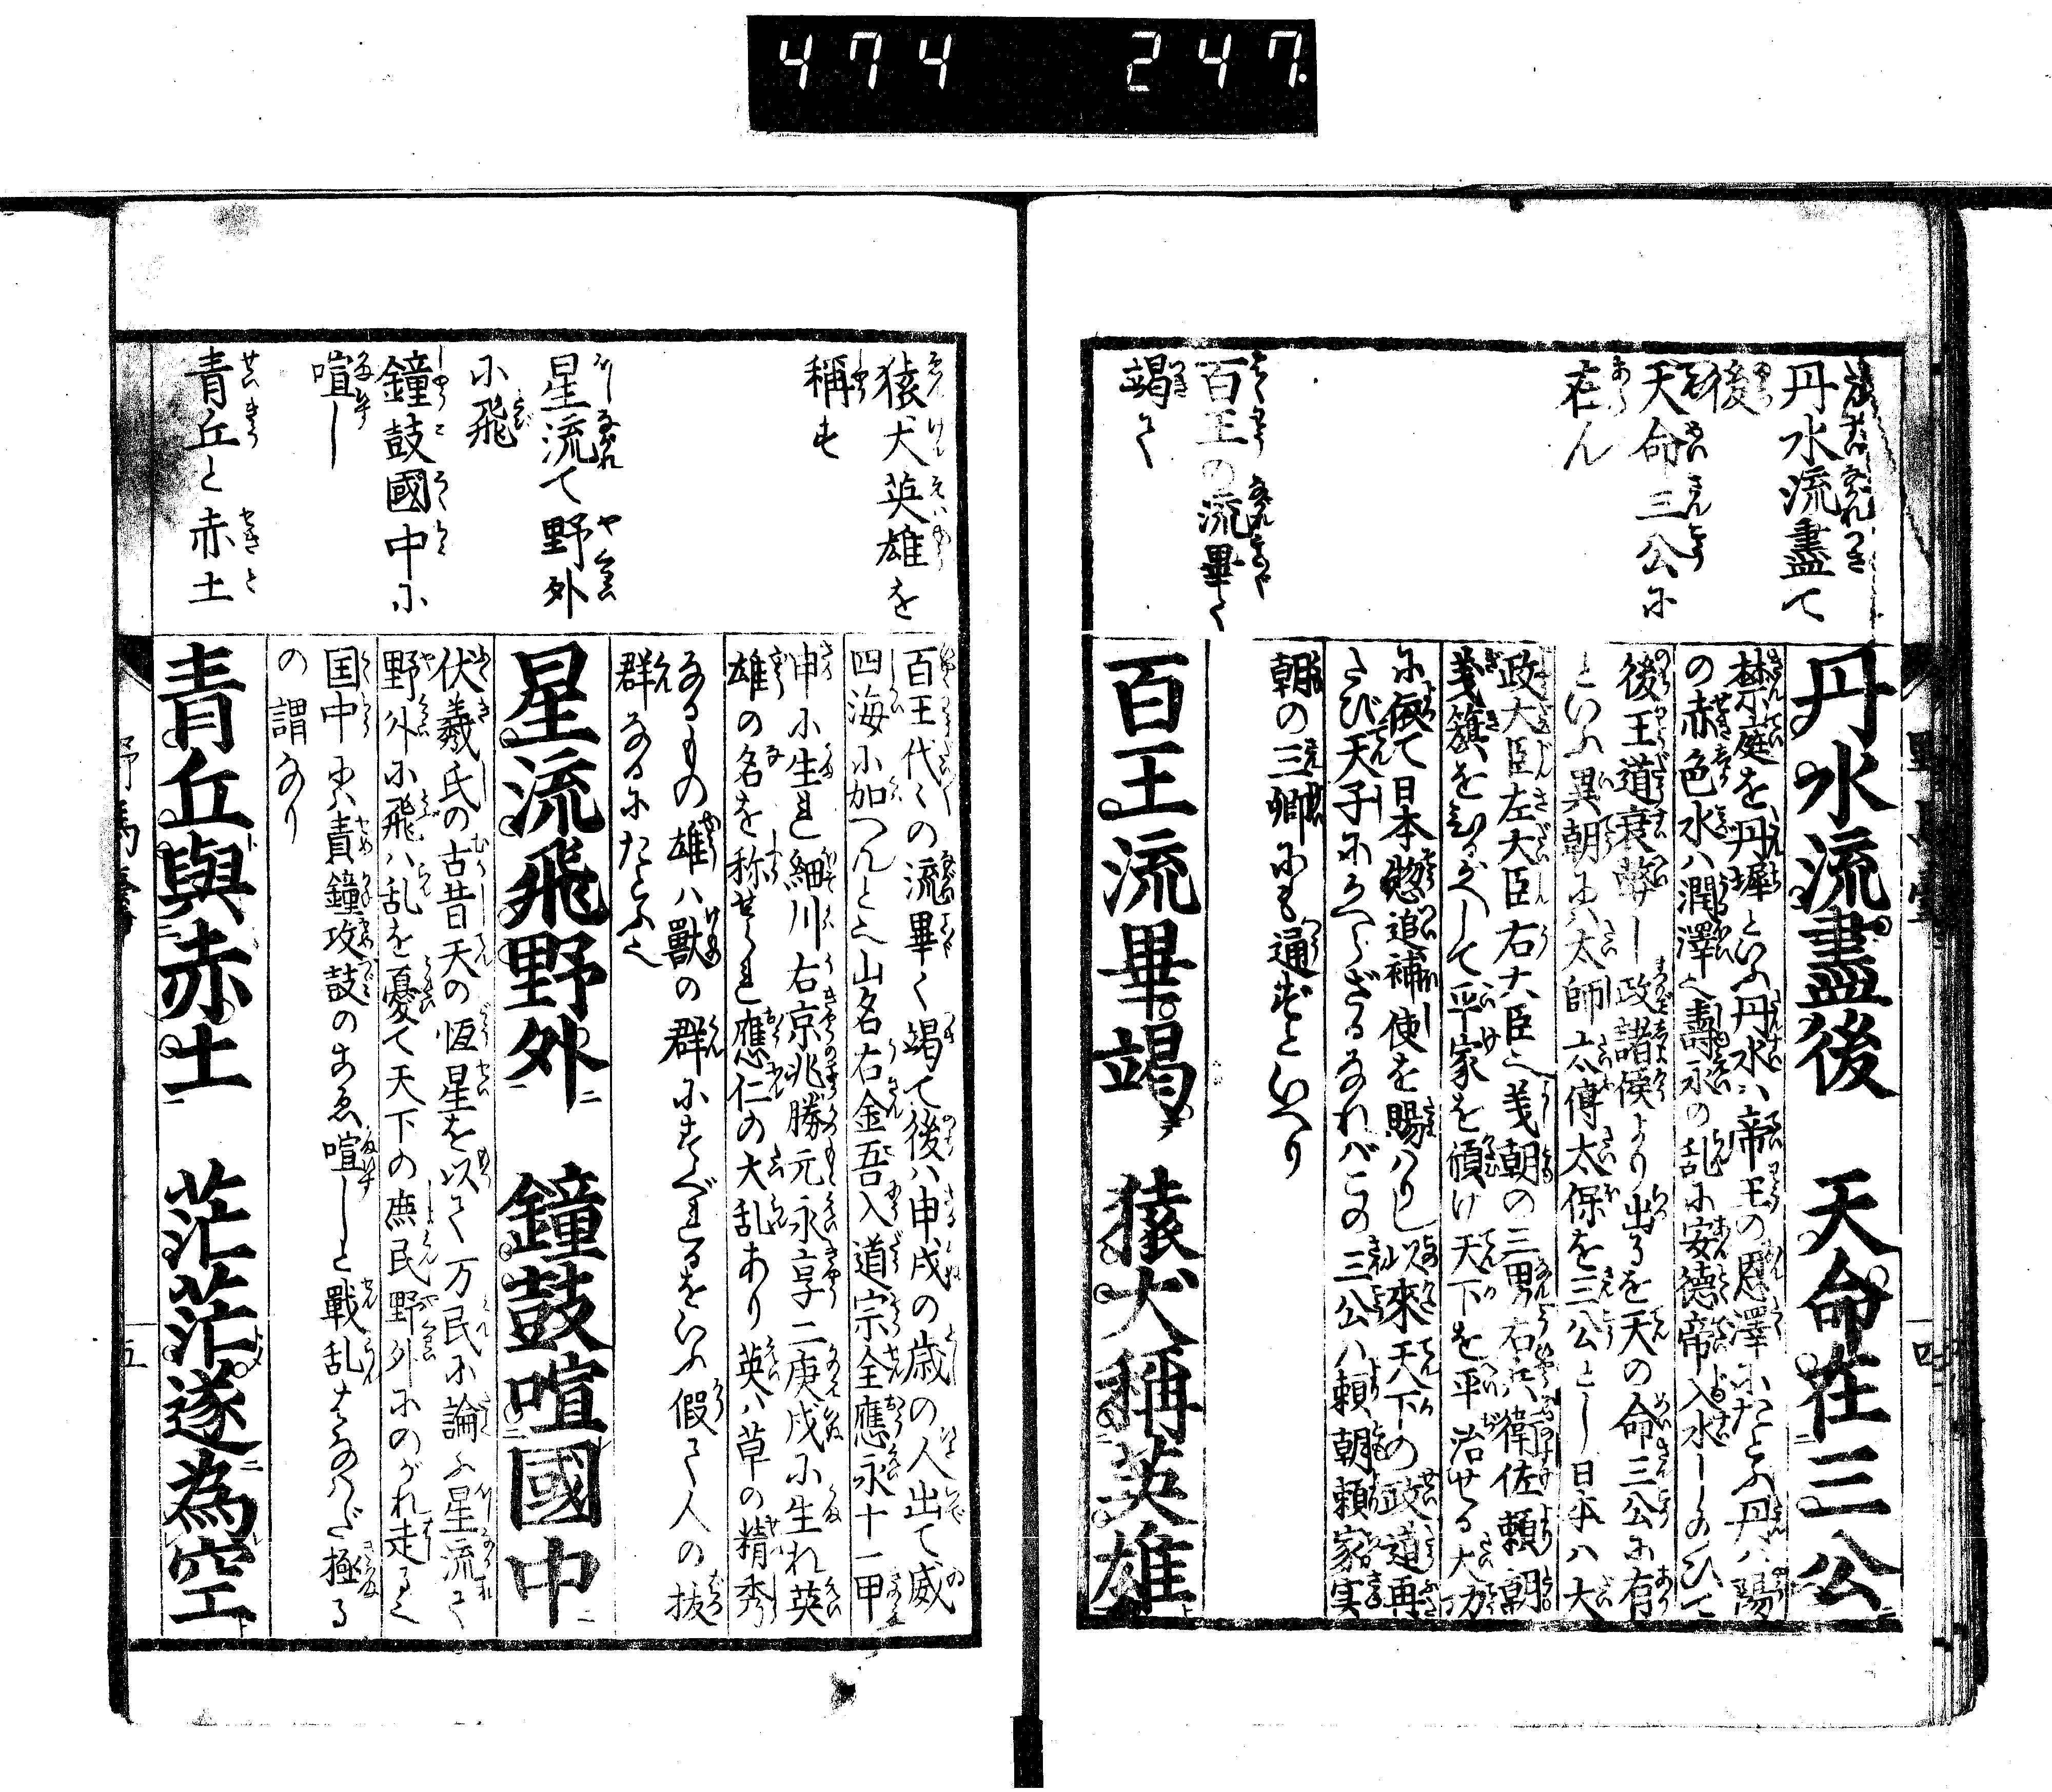 474 247
丹水流盡て
後
天命三公に
在ん
百王の流畢く
竭て
丹水流盡後 天命在三公
禁庭を丹墀といふ丹水ハ帝王の恩澤にたとふ丹ハ陽
の赤色水ハ潤澤也壽永の乱に安徳帝入水しのひて
後王道衰弊し政諸侯より出るを天の命三公に有
といふ異朝にハ太師太傅太保を三公とし日本ハ大
政大臣左大臣右大臣也義朝の三男右兵衛佐頼朝
義籏を
して平家を傾け天下を平治せる大功
に仮て日本惣追補使を賜ハりし以來天下の政道再
たび天子にかへらざるなれバこの三公ハ頼朝頼家実
朝の三卿にも通ずといへり
百王流畢竭 猿犬稱英雄
猿犬英雄を
稱す
星流て野外
に飛
鐘鼓國中に
喧し
青丘と赤土
百王代々の流畢く竭て後ハ申戌の歳の人出て威
四海に加へんと也山名右金吾入道宗全應永十一甲
申に生れ細川右京兆勝元永享二庚戌に生れ英
雄の名を称せられ應仁の大乱あり英ハ草の精秀
なるもの雄ハ獸の群にすぐれるをいふ假て人の抜
群なるにたとふ也
星流飛野外 鐘鼓喧國中
伏羲氏の古昔天の恆星を以て万民に論ふ星流て
野外に飛ハ乱を憂て天下の庶民野外にのがれ走る也
国中にハ責鐘攻鼓のこゑ喧しと戰乱はなはだ極る
の謂なり
青丘與赤土 茫茫遂為空
野馬臺
五